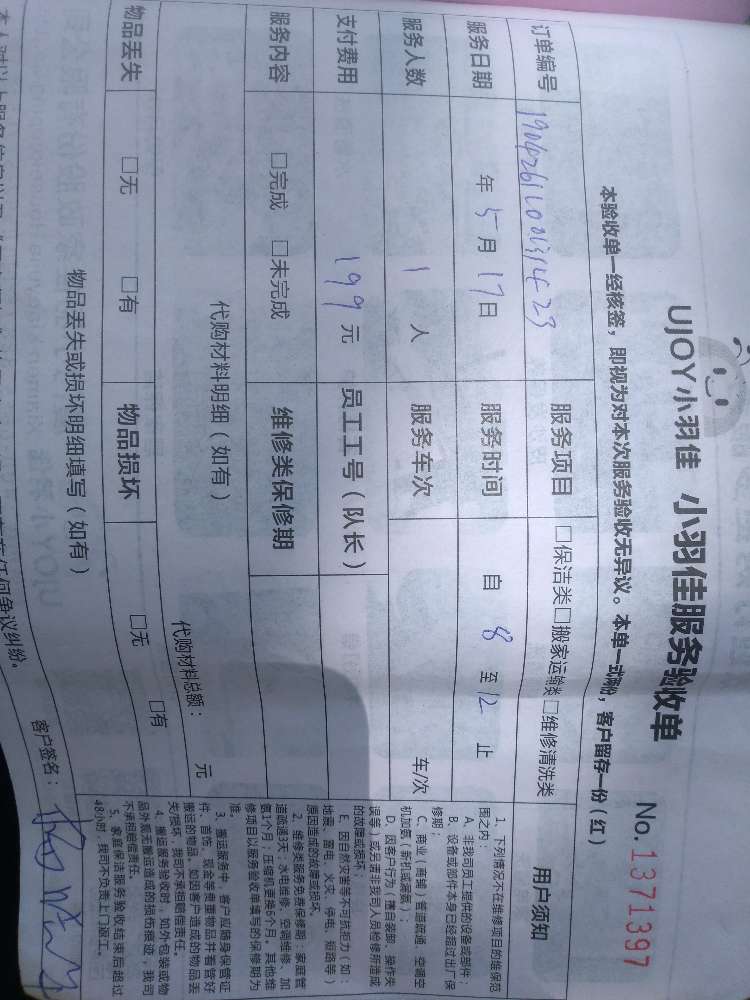 UJOY小羽佳 小羽佳服务验收单
No. 1371397
本验收单一经核签，即视为对本次服务验收无异议。本单一式两份，客户留存一份（红）
订单编号
服务项目 □保洁类 □搬家运输类 □维修清洗类
服务日期 年 5 月 17 日 服务时间 自 8 至 12 止
服务人数 1 人 服务车次 车/次
支付费用 199 元 员工工号（队长）
服务内容 □完成 □未完成 维修类保修期
代购材料明细（如有）
代购材料总额： 元
物品丢失 □无 □有 物品损坏 □无 □有
物品丢失或损坏明细填写（如有）
任何争议纠纷。
客户签名：
用户须知
1、下列情况不在维修项目的维保范
围之内：
A、非我司员工提供的设备或部件；
B、设备或部件本身已经超过出厂保
修期；
C、商业（商铺）管道疏通、空调空
机加氨（新机或漏氨）；
D、因客户行为（擅自装卸、操作失
误等）或另请非我司人员检修所造成
的故障或损坏；
E、因自然灾害等不可抗拒力（如：
地震、雷电、火灾、停电、短路等）
原因造成的故障或损坏。
2、维修类服务免费保修期：家庭管
道疏通3天；水电维修、空调维修、加
氨1个月；压缩机更换6个月。其他维
修项目以服务验收单填写的保修期为
准。
3、搬运服务中，客户应随身保管证
件、首饰、现金等贵重物品并看管好
搬运的物品，如因客户造成的物品丢
失/损坏，我司不承担赔偿责任。
4、搬运服务验收时，如外包装或物
品外观无搬运造成的损伤痕迹，我司
不承担赔偿责任。
5、家庭保洁服务验收结束后超过
48小时，我司不负责上门返工。